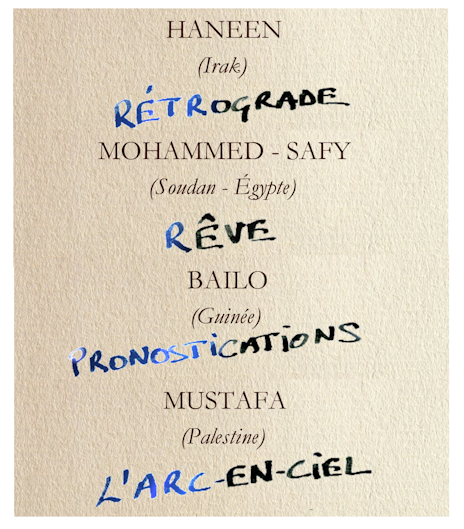 HANEEN
(Irak)
RÉTROGRADE
MOHAMMED - SAFY
(Soudan - Égypte)
RÊVE
BAILO
(Guinée)
PRONOSTiCATiONS
MUSTAFA
(Palestine)
L'ARC-EN-CiEL